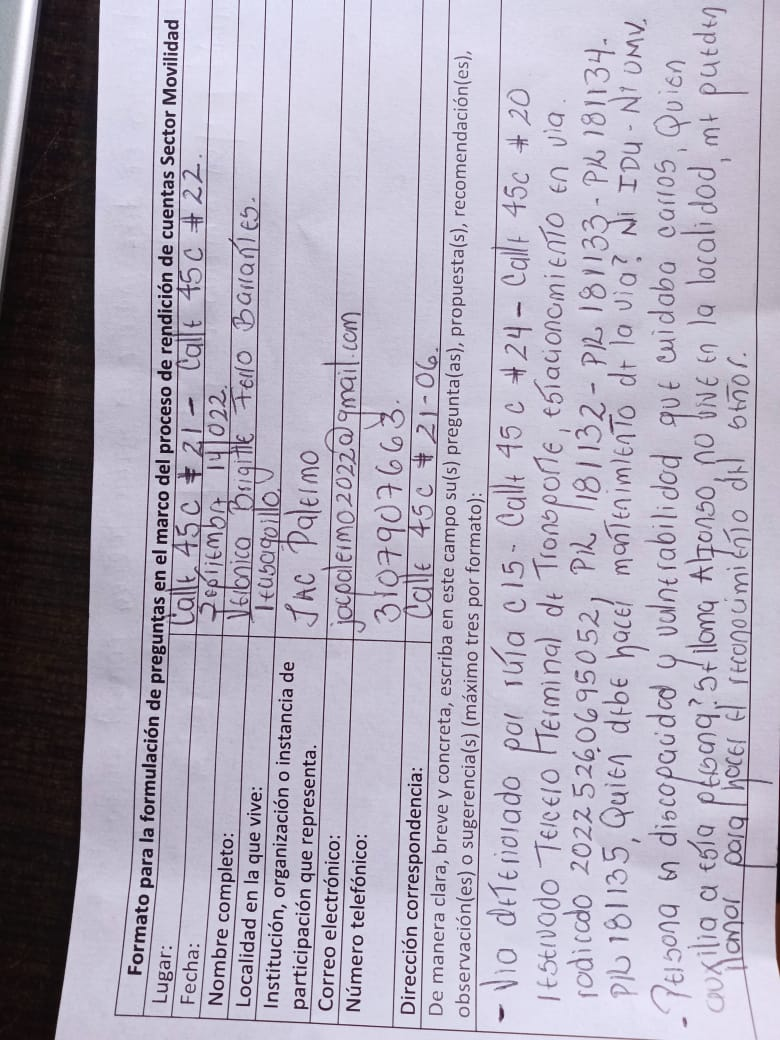 Formato para la formulación de preguntas en el marco del proceso de rendición de cuentas Sector Movilidad
Lugar: Calle 45 C # 21 - Calle 45 C # 22.
Fecha: Septiembre 14/022.
Nombre completo: Veronica Brigitte Fello Barrantes.
Localidad en la que vive: Teusaquillo
Institución, organización o instancia de
participación que representa. JAC Palermo
Correo electrónico: jacpalermo2022@gmail.com
Número telefónico: 3107907663.
Dirección correspondencia: Calle 45C # 21-06.
De manera clara, breve y concreta, escriba en este campo su(s) pregunta(as), propuesta(s), recomendación(es),
observación(es) o sugerencia(s) (máximo tres por formato):
- Via deteriorado por ruta C15. Calle 45 C # 24 - Calle 45C # 20
reservado Tercero Terminal de Transporte, estacionamiento en via.
radicado 20225260695052, PK 181132 - PK 181133 - PK 181134.
PK 181135, Quien debe hacer mantenimiento de la via? Ni IDU - Ni UMV.
- Persona en discapacidad y vulnerabilidad que cuidaba carros, Quien
auxilia a esta persona? Se llama Alfonso no vive en la localidad, me pueden
llamar para hacer el reconocimiento del señor.